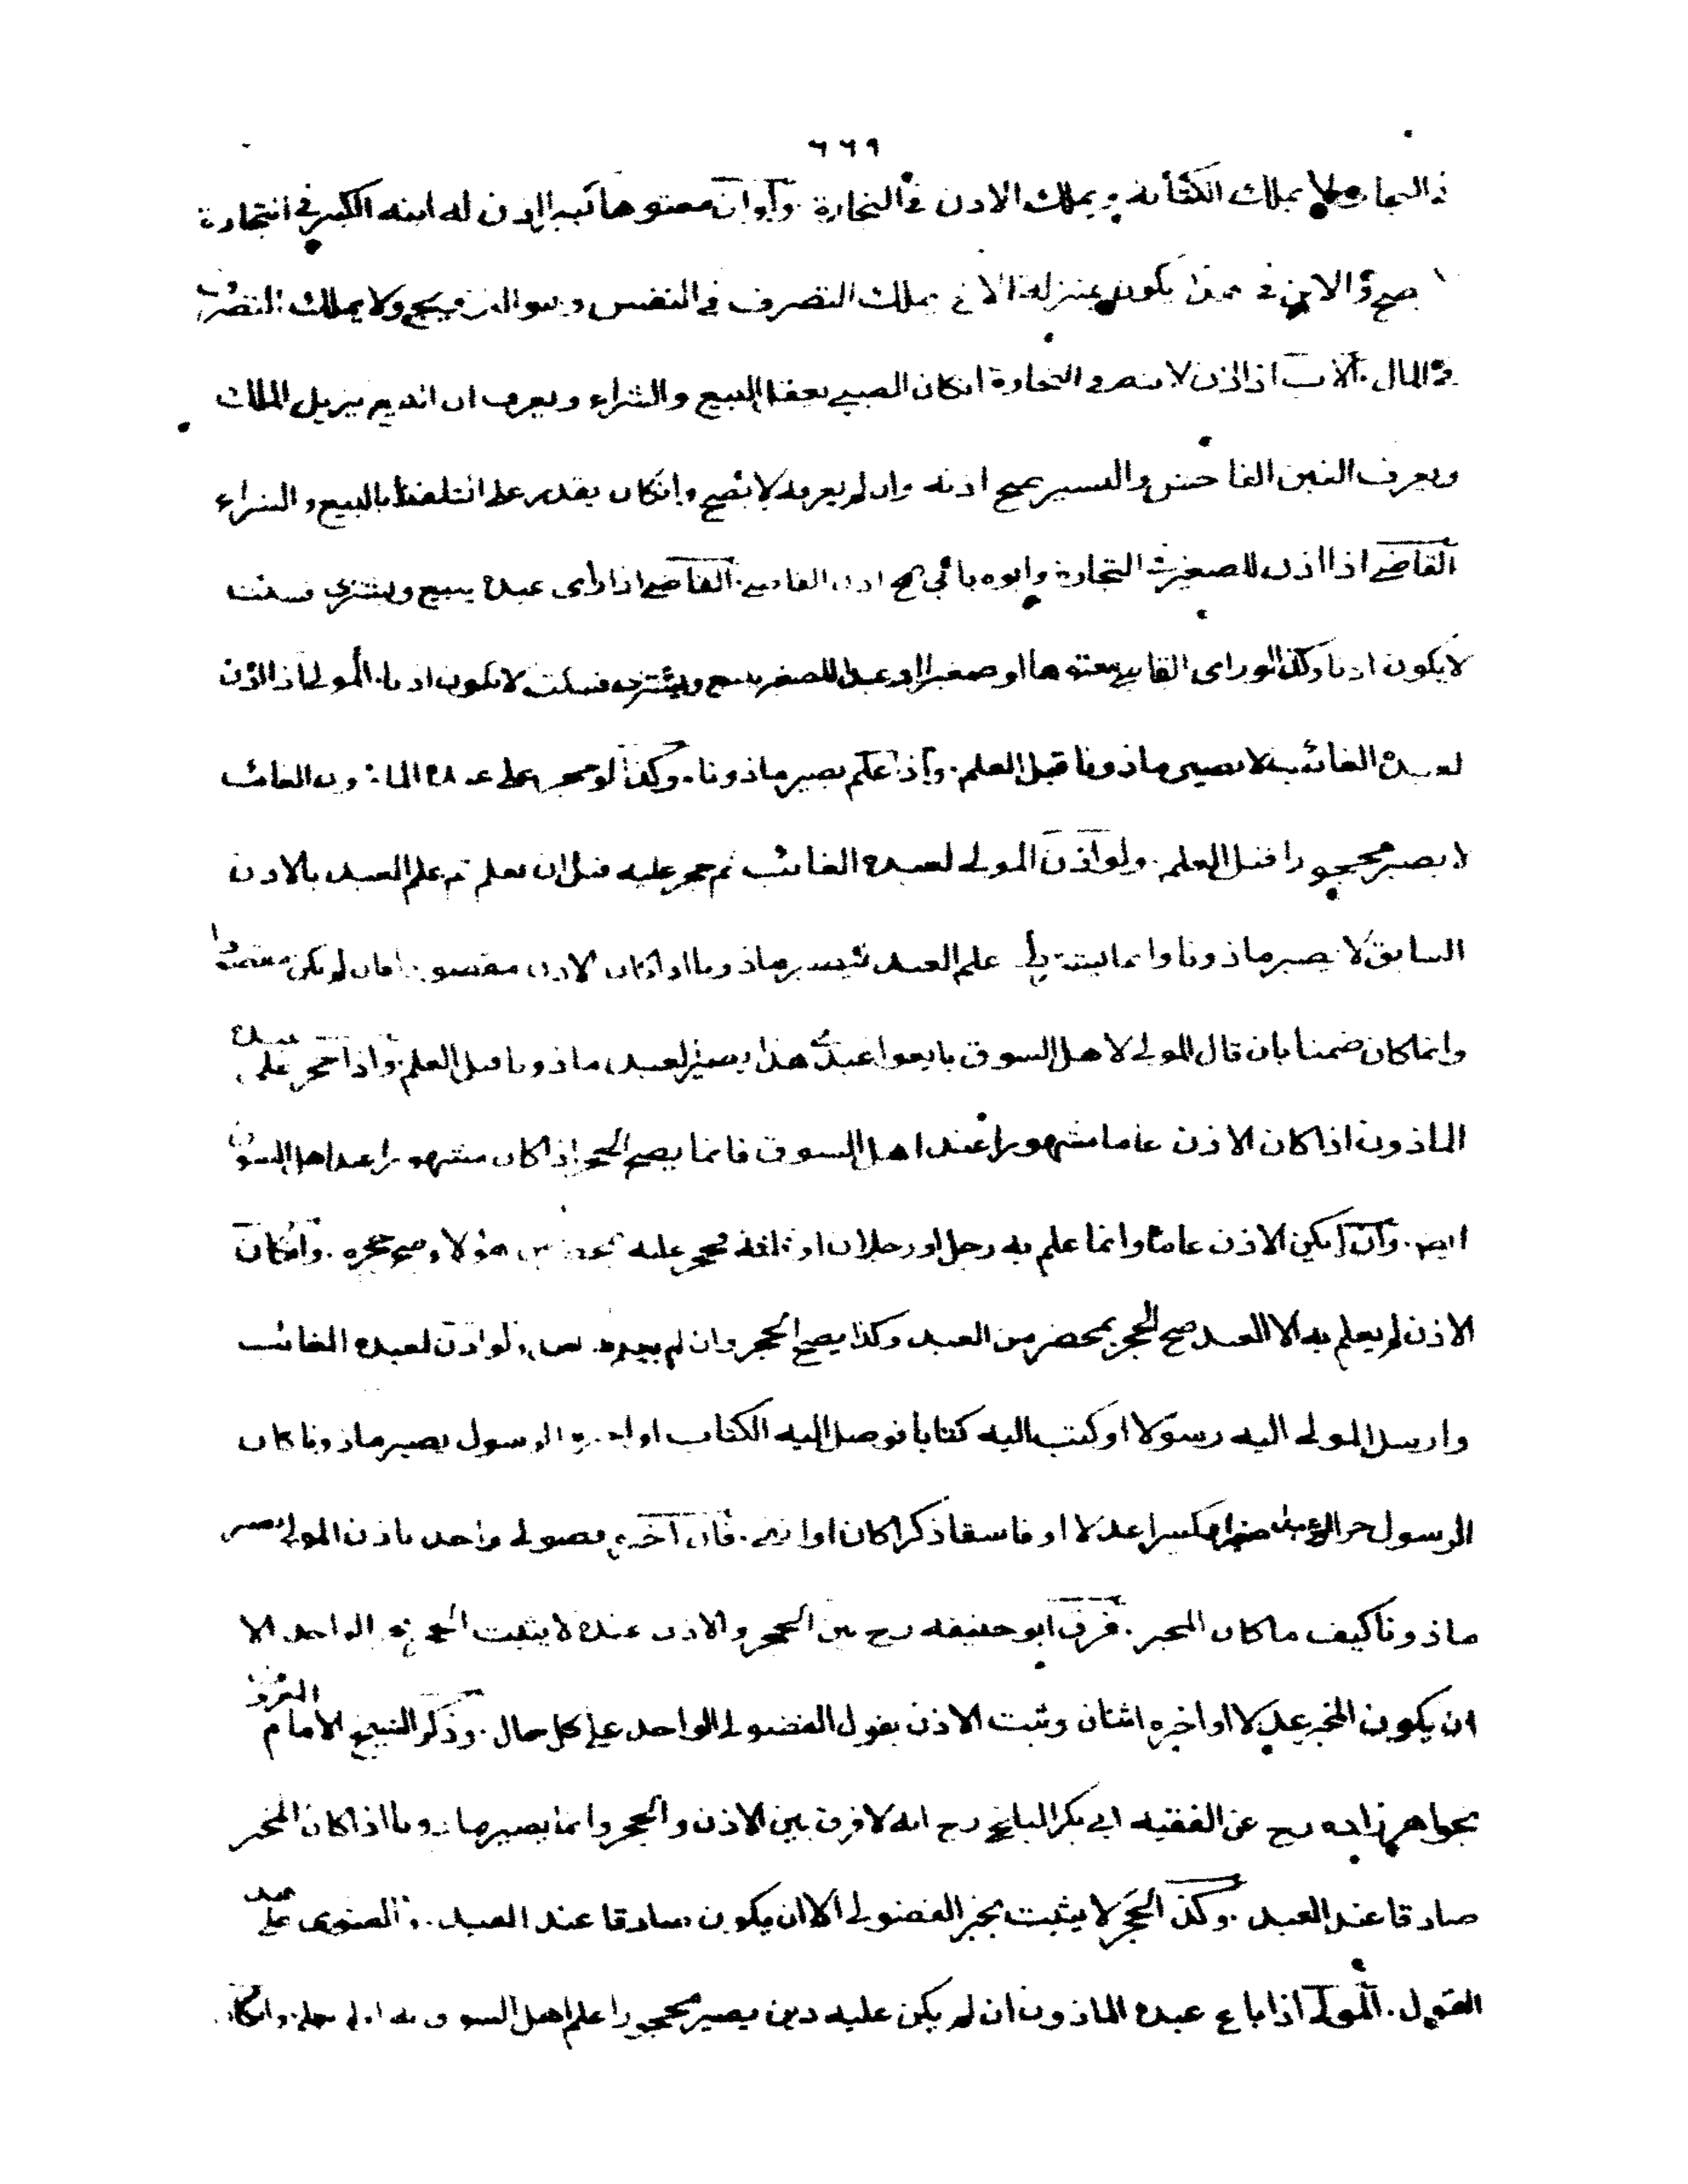 ٦٦٩
في التجارة ولا يملك الكتابة ويملك الاذن في التجارة ولو ان معتوها كبيرا اذن له ابنه الكبير في التجارة
لا صح والابن في هذا يكون بمنزلة الاخ يملك التصرف في النفس وهو التزويج ولا يملك التصرف
في المال . الاب اذا اذن لابنه في التجارة انكان الصبي يعقل البيع والشراء ويعرف ان البيع يزيل الملك
ويعرف الغبن الفاحش واليسير يصح اذنه وان لم يعرف لا يصح وانكان يقدر على التلفظ بالبيع والشراء
القاضي اذا اذن للصغير في التجارة وابوه يابى صح اذن القاضي . القاضي اذا راى عبده يبيع ويشتري فسكت
لا يكون اذنا وكذا لو راى القاضي معتوها او صغيرا او عبدا للصغير يبيع ويشتري فسكت لا يكون اذنا . المولى اذا اذن
لعبده الغائب لا يصير ماذونا قبل العلم . واذا علم يصير ماذونا . وكذا لو حجر على عبده الماذون الغائب
لا يصير محجورا قبل العلم . ولو اذن المولى لعبده الغائب ثم حجر عليه قبل ان يعلم ثم علم العبد بالاذن
السابق لا يصير ماذونا وانما علم العبد ليصير ماذونا اذا كان الاذن مقصودا فان لم يكن مقصودا
وانما كان ضمنا بان قال المولى لاهل السوق بايعوا عبدي هذا يصير العبد ماذونا قبل العلم . واذا حجر على عبده
الماذون اذا كان الاذن عاما مشهورا عند اهل السوق فانما يصح الحجر اذا كان مشهورا عند اهل السوق
ايضا . وان لم يكن الاذن عاما وانما علم به رجل او رجلان او ثلاثة فحجر عليه بمحضر من هؤلاء صح حجره . وانكان
الاذن لم يعلم به الا العبد صح الحجر بمحضر من العبد وكذا يصح الحجر وان لم ولو اذن لعبده الغائب
وارسل المولى اليه رسولا او كتب اليه كتابا فوصل اليه الكتاب او اخبره الرسول يصير ماذونا كان
الرسول حرا صغيرا كبيرا عدلا او فاسقا ذكرا كان او انثى . فان اخبره فضولي واحد باذن المولى يصير
ماذونا كيف ما كان المخبر . فرق ابو حنيفه رح بين الحجر والاذن عنده لا يثبت الحجر بخبر الواحد الا
ان يكون المخبر عدلا او اخبره اثنان ويثبت الاذن بقول الفضولي الواحد على كل حال . وذكر الشيخ الامام
بخواهر زاده رح عن الفقيه ابي بكر البلخي رح انه لا فرق بين الاذن والحجر وانما يصير ماذونا اذا كان المخبر
صادقا عند العبد . وكذا الحجر لا يثبت بخبر الفضولي الا ان يكون صادقا عند العبد . والفتوى على هذا
القول . المولى اذا باع عبده الماذون ان لم يكن عليه دين يصير محجورا علم اهل السوق به او لم يعلم . وانكان